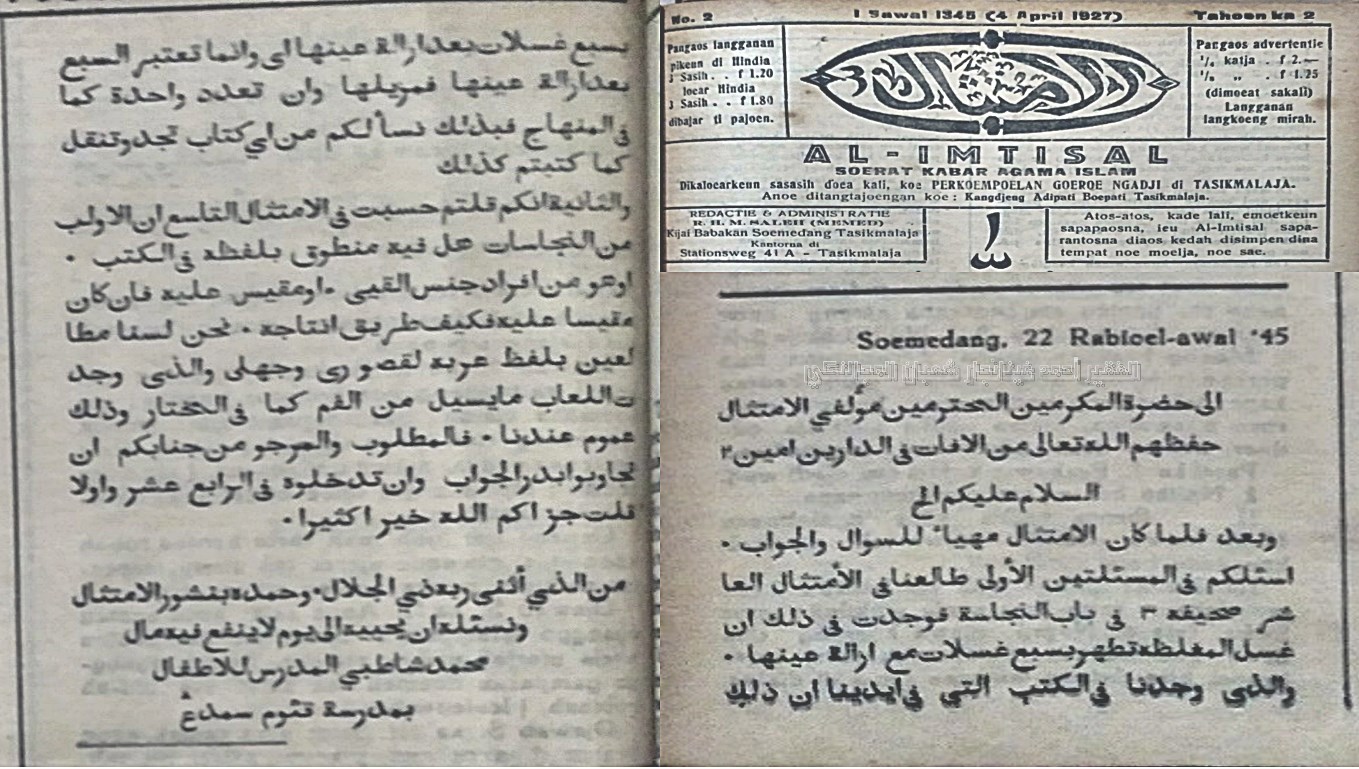 No. 2
1 Sawal 1345 (4 April 1927)
Tahoen ka 2
Pangaos langganan
pikeun di Hindia
3 Sasih . . f 1.20
loear Hindia
3 Sasih . . f 1.80
dibajar ti pajoen.
الامتثال
Pangaos advertentie
1/1 katja . f 2.—
1/2 „ . f 1.25
(dimoeat sakali)
Langganan
langkoeng mirah.
AL-IMTISAL
SOERAT KABAR AGAMA ISLAM
Dikaloearkeun sasasih doea kali, koe PERKOEMPOELAN GOEROE NGADJI di TASIKMALAJA.
Anoe ditangtajoengan koe: Kangdjeng Adipati Boepati Tasikmalaja.
REDACTIE & ADMINISTRATIE
R. H. M. SALEH (MEMED)
Kijai Babakan Soemedang Tasikmalaja
Kantorna di
Stationsweg 41 A – Tasikmalaja
Atos-atos, kade lali, emoetkeun
sapapaosna, ieu Al-Imtisal sapa-
rantosna diaos kedah disimpen dina
tempat noe moelja, noe sae.
Soemedang, 22 Rabioel-awal '45
الى حضرة المكرمين المحترمين مؤلفي الامتثال
حفظهم الله تعالى من الافات في الدارين امين ٢
السلام عليكم الخ
وبعد فلما كان الامتثال مهيأ للسوال والجواب ٠
اسئلكم في المسئلتين الأولى طالعنا في الأمتثال العا
شر صحيفة ٣ في باب النجاسة فوجدت في ذلك ان
غسل المغلظة تطهر بسبع غسلات مع ازالة عينها ٠
والذى وجدنا في الكتب التي في ايدينا ان ذلك
بسبع غسلات بعد ازالة عينها اى وانما تعتبر السبع
بعد ازالة عينها فمزيلها وان تعدد واحدة كما
في المنهاج فبذلك نسألكم من اي كتاب تجد وتنقل
كما كتبتم كذلك
والثانية انكم قلتم حسبت في الامتثال التاسع ان الاولب
من النجاسات هل فيه منطوق بلفظه في الكتب ٠
او هو من افراد جنس القيى ٠ او مقيس عليه فان كان
مقيسا عليه فكيف طريق انتاجه ٠ نحن لسنا مطا
لعين بلفظ عربه لقصورى وجهلى والذى وجد
ت اللعاب مايسيل من الفم كما في المختار وذلك
عموم عندنا ٠ فالمطلوب والمرجو من جنابكم ان
تجاوبوا بدر الجواب وان تدخلوه في الرابع عشر واولا
قلت جزاكم الله خيرا كثيرا ٠
من الذي أثنى ربه ذي الجلال ٠ وحمده بنشور الامتثال
ونسئله ان يحييه الى يوم لا ينفع فيه مال
محمد شاطبي المدرس للاطفال
بمدرسة قئوم سمدڠ